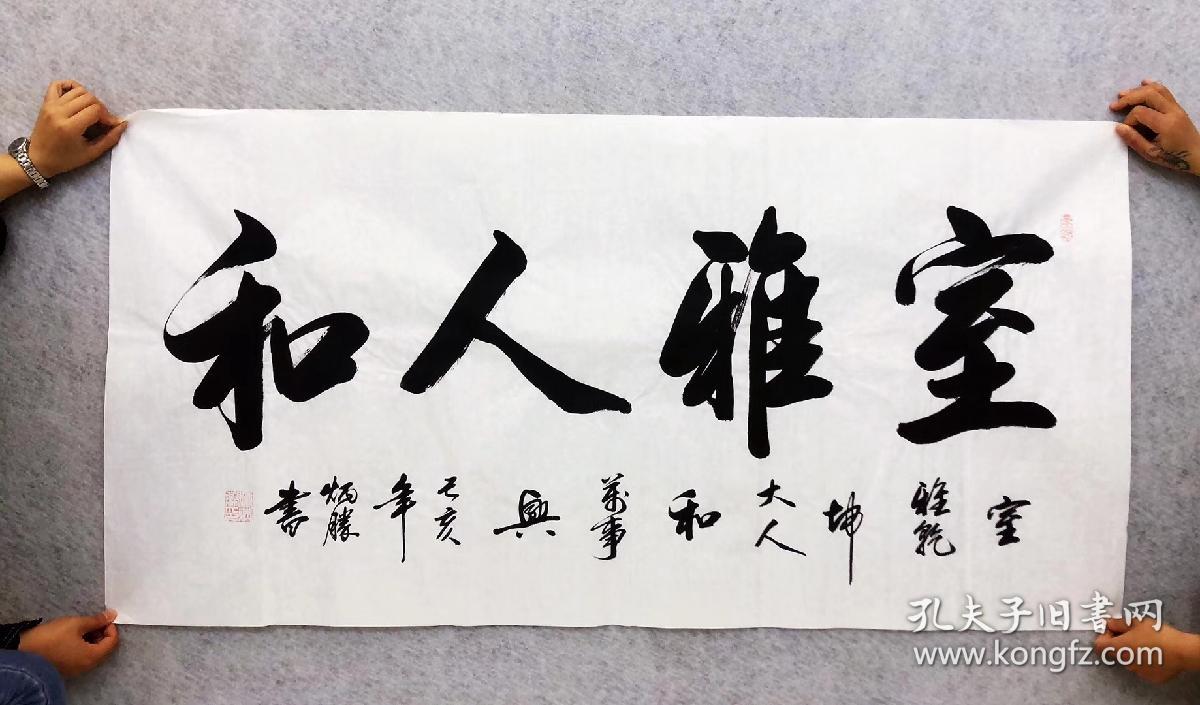 室雅人和
室雅乾坤大人和萬事興己亥年炳勝書
孔夫子旧書网
www.kongfz.com